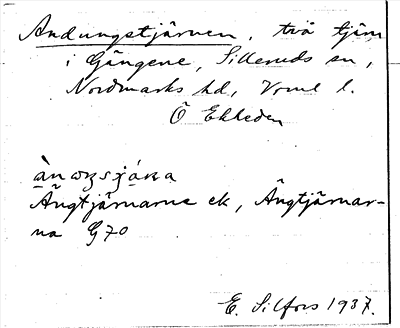 Andungstjärnen, två tjärn
i Gängene, Silleruds sn,
Nordmarks hd, Vrml l.
Ö Ekheden
Ängtjärnarne ek, Ängtjärnar-
na G 70
E. Silfors 1937.